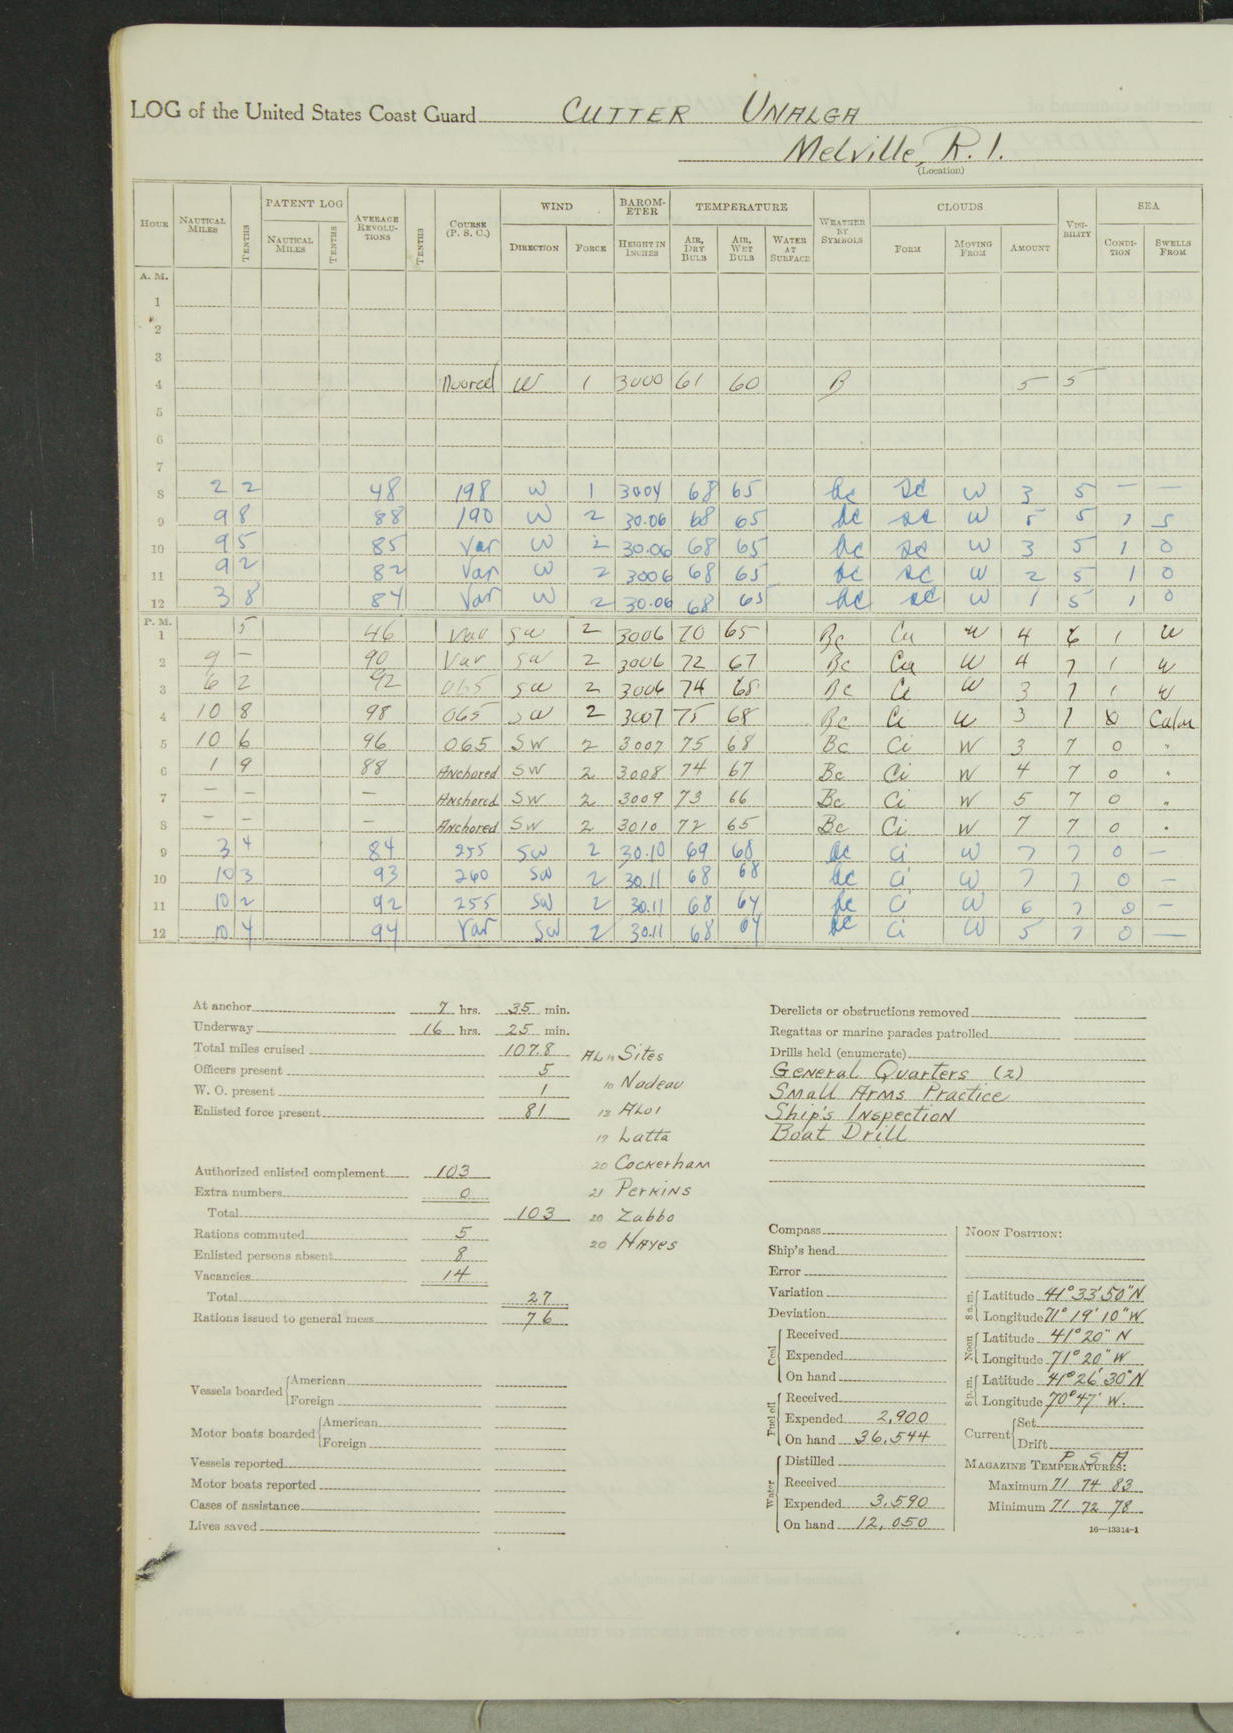 LOG of the United States Coast Guard CUTTER UNALGA
Melville, R.I.
(Location)
HOUR NAUTICAL MILES TENTHS PATENT LOG NAUTICAL MILES TENTHS AVERAGE REVOLUTIONS TENTHS COURSE (P. S. C.) WIND DIRECTION FORCE BAROMETER HEIGHT IN INCHES TEMPERATURE AIR, DRY BULB AIR, WET BULB WATER AT SURFACE WEATHER BY SYMBOLS CLOUDS FORM MOVING FROM AMOUNT VISIBILITY SEA CONDITION SWELLS FROM
A. M.
1
2
3
4 Moored W 1 3000 61 60 B 5 5
5
6
7
8 2 2 48 198 W 1 3004 68 65 bc sc W 3 5 — —
9 9 8 88 190 W 2 30.06 68 65 bc sc W 5 5 1 S
10 9 5 85 Var W 2 30.06 68 65 bc sc W 3 5 1 0
11 9 2 82 Var W 2 3006 68 65 bc sc W 2 5 1 0
12 3 8 84 Var W 2 30.06 68 65 bc sc W 1 5 1 0
P. M.
1 5 46 Var SW 2 3006 70 65 Bc Cu W 4 6 1 W
2 9 – 90 Var SW 2 3006 72 67 Bc Cu W 4 7 1 W
3 6 2 92 065 SW 2 3006 74 68 Bc Ci W 3 7 1 W
4 10 8 98 065 SW 2 3007 75 68 Bc Ci W 3 7 0 Calm
5 10 6 96 065 SW 2 3007 75 68 Bc Ci W 3 7 0 "
6 1 9 88 Anchored SW 2 3008 74 67 Bc Ci W 4 7 0 "
7 – – – Anchored SW 2 3009 73 66 Bc Ci W 5 7 0 "
8 – – – Anchored SW 2 3010 72 65 Bc Ci W 7 7 0 "
9 3 4 84 255 SW 2 30.10 69 68 bc Ci W 7 7 0 —
10 10 3 93 260 SW 2 30.11 68 68 bc Ci W 7 7 0 —
11 10 2 92 255 SW 2 30.11 68 64 bc Ci W 6 7 0 —
12 10 4 94 Var SW 2 30.11 68 64 bc Ci W 5 7 0 —
At anchor 7 hrs. 35 min.
Underway 16 hrs. 25 min.
Total miles cruised 107.8
Officers present 5
W. O. present 1
Enlisted force present 81
Authorized enlisted complement 103
Extra numbers 0
Total 103
Rations commuted 5
Enlisted persons absent 8
Vacancies 14
Total 27
Rations issued to general mess 76
Vessels boarded American
Foreign
Motor boats boarded American
Foreign
Vessels reported
Motor boats reported
Cases of assistance
Lives saved
Sites
Nadeau
Latta
20 Cockerham
21 Perkins
20 Zabbo
20 Hayes
Derelicts or obstructions removed
Regattas or marine parades patrolled
Drills held (enumerate)
General Quarters (2)
Small Arms Practice
Ship's Inspection
Boat Drill
Compass
Ship's head
Error
Variation
Deviation
Coal Received
Expended
On hand
Fuel oil Received
Expended 2,900
On hand 36,544
Water Distilled
Received
Expended 3,590
On hand 12,050
NOON POSITION:
8 a. m. Latitude 41° 33' 50" N
Longitude 71° 19' 10" W
Noon Latitude 41° 20" N
Longitude 71° 20" W
8 p. m. Latitude 41° 26' 30" N
Longitude 70° 47' W.
Current Set
Drift
P S A
MAGAZINE TEMPERATURES:
Maximum 71 74 83
Minimum 71 72 78
16—13314-1